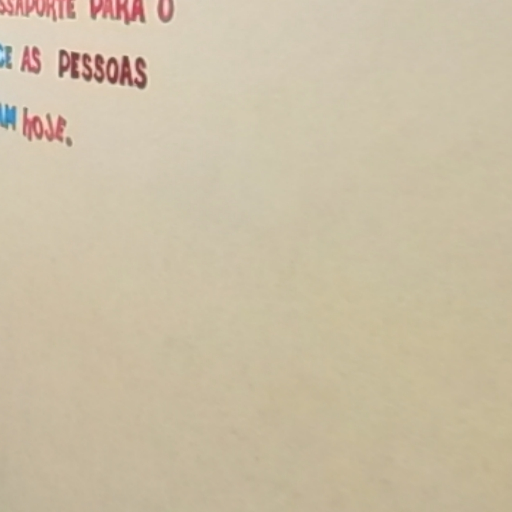 SSAPORTE PARA O
CE AS PESSOAS
AM hOJE.